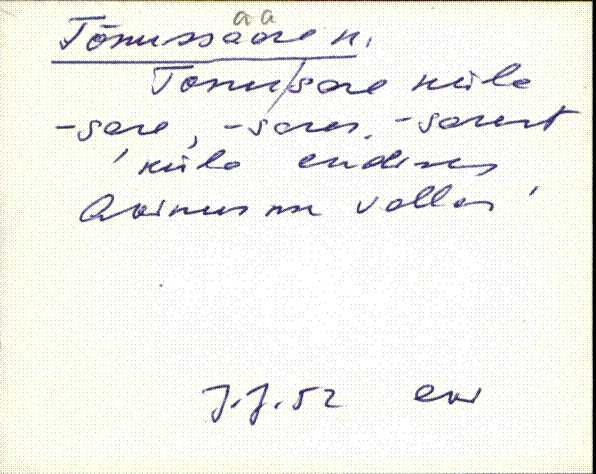 aa
Tõnussaare k.
Tonu/sare küla
-sare, -sares, -sarest
'küla endises
Avinurme vallas'
J.J. 52